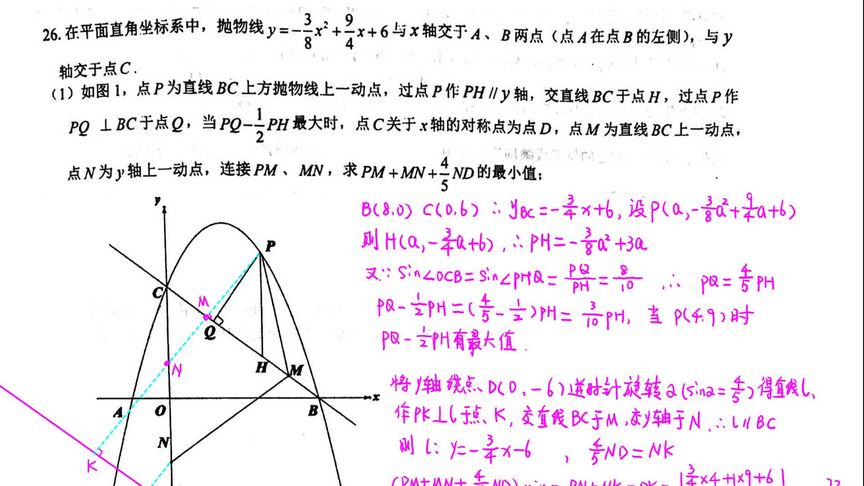 26.在平面直角坐标系中，抛物线 y=-3/8x²+9/4x+6与x轴交于A、B两点（点A在点B的左侧），与y
轴交于点C．
（1）如图1，点P为直线BC上方抛物线上一动点，过点P作PH//y轴，交直线BC于点H，过点P作
PQ ⊥BC于点Q，当PQ-1/2PH最大时，点C关于x轴的对称点为点D，点M为直线BC上一动点，
点N为y轴上一动点，连接PM、MN，求PM+MN+4/5ND的最小值；
B(8,0) C(0,6) ∴ y_BC=-3/4x+6, 设P(a,-3/8a²+9/4a+6)
则H(a,-3/4a+6), ∴PH=-3/8a²+3a
又∵ sin∠OCB=sin∠PHQ=PQ/PH=8/10 ∴ PQ=4/5PH
PQ-1/2PH=(4/5-1/2)PH=3/10PH, 当 P(4,9)时
PQ-1/2PH有最大值.
将y轴绕点D(0,-6)逆时针旋转α(sinα=4/5)得直线l,
作PK⊥l于点K, 交直线BC于M,交y轴于N.∴l∥BC
则 l: y=-3/4x-6 , 4/5ND=NK
y
P
C
M
Q
N
H
M
A
O
B
x
N
K